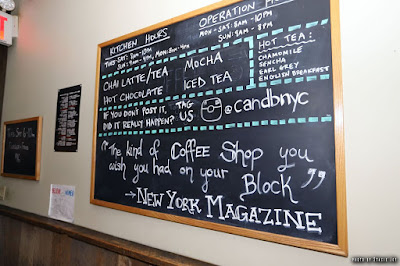 KITCHEN HOURS
TUES-SAT: 8AM-10PM
SUN: 9AM-4PM, MON: 8AM-4PM
OPERATION
MON-SAT: 8AM-10PM
SUN: 9AM-9PM
CHAI LATTE/TEA
HOT CHOCOLATE
MOCHA
ICED TEA
HOT TEA:
CHAMOMILE
SENCHA
EARL GREY
ENGLISH BREAKFAST
IF YOU DON'T POST IT,
DID IT REALLY HAPPEN?
TAG
US
@candbnyc
"The kind of COFFEE SHOP you
wish you had on your BLOCK"
→NEW YORK MAGAZINE